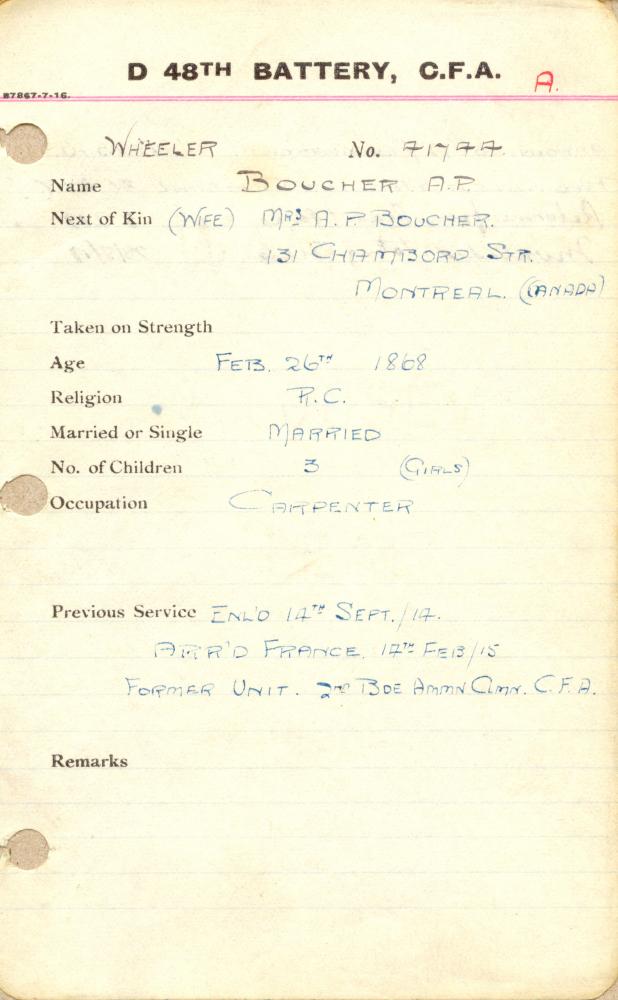 D 48TH BATTERY, C.F.A.
A.
B7867-7-16.
WHEELER No.
Name BOUCHER A.P.
Next of Kin (WIFE) MRS A. P. BOUCHER.
131 CHAMBORD STR.
MONTREAL. (CANADA)
Taken on Strength
Age FEB. 26TH 1868
Religion R.C.
Married or Single MARRIED
No. of Children 3 (GIRLS)
Occupation CARPENTER
Previous Service ENL'D 14TH SEPT./14.
ARR'D FRANCE. FEB/15
FORMER UNIT. 2ND BDE AMMN CLMN. C.F.A.
Remarks